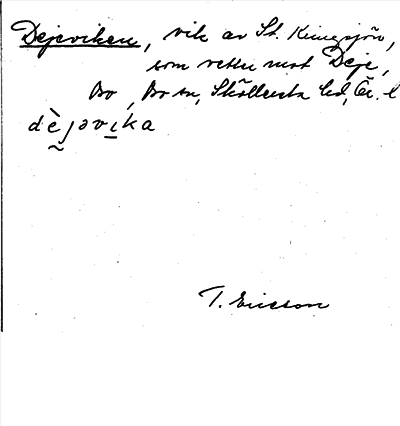 Dejeviken, vik av St. Kringsjön,
som vetter mot Deje,
Bo, Bo sn, Sköllersta hd, Ör. l
dèjəvika
T. Ericsson